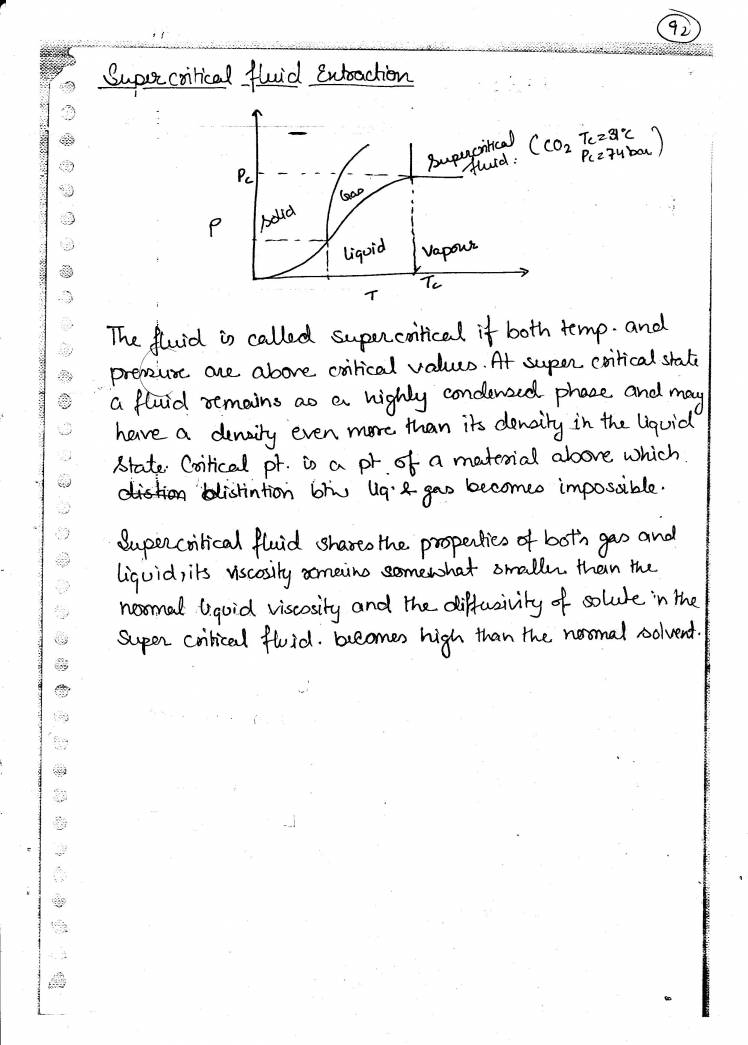 92
Supercritical fluid Extraction
Supercritical fluid. (CO2 Tc = 31°C
Pc = 74 bar)
Pc
Gas
Solid
P
liquid
Vapour
T
Tc
The fluid is called supercritical if both temp. and
pressure are above critical values. At super critical state
a fluid remains as a highly condensed phase and may
have a density even more than its density in the liquid
state. Critical pt. is a pt of a material above which
distinction btw liq. & gas becomes impossible.
Supercritical fluid shares the properties of both gas and
liquid, its viscosity remains somewhat smaller than the
normal liquid viscosity and the diffusivity of solute in the
super critical fluid. becomes high than the normal solvent.